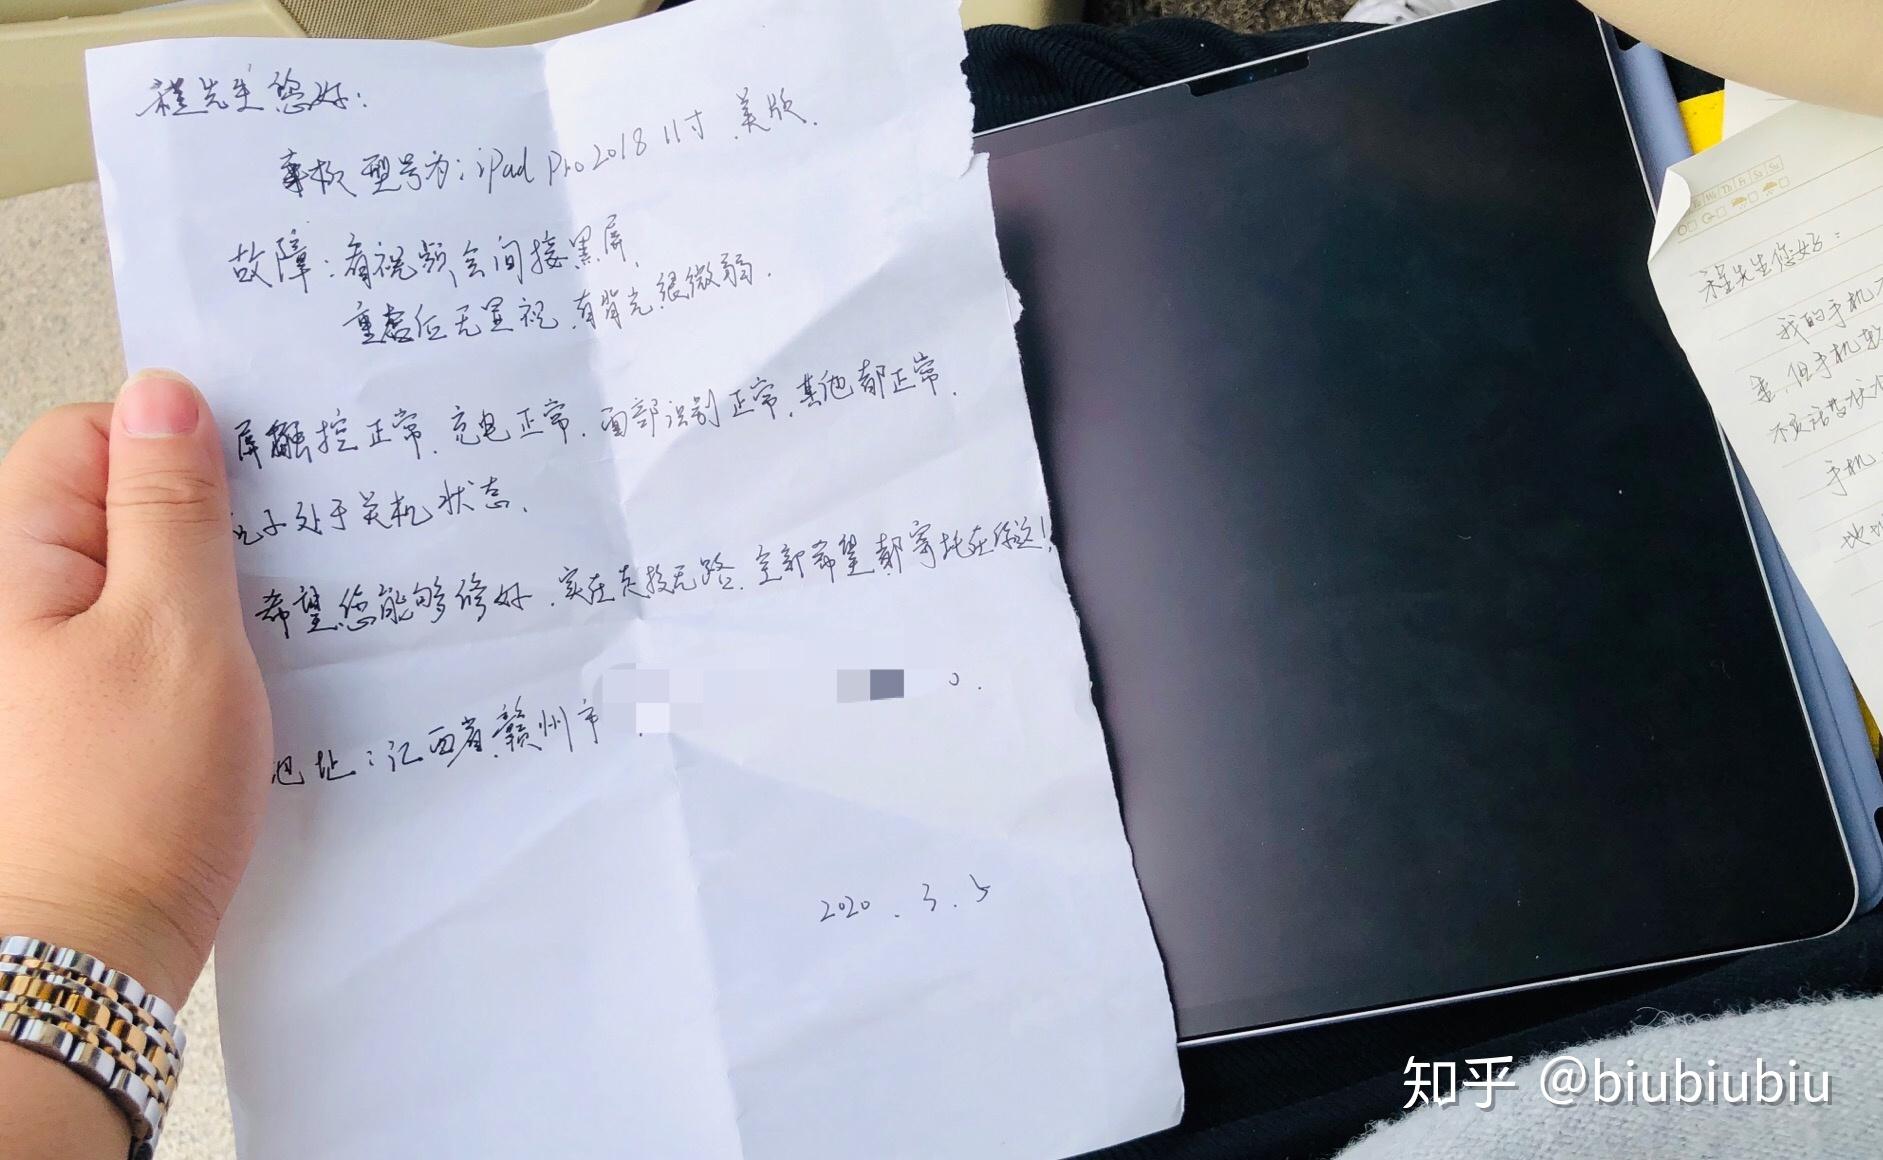 程先生您好：
本机型号为：iPad Pro 2018 11寸 美版.
故障：看视频会间接黑屏,
重启后无显视,有背光很微弱.
屏触控正常,充电正常,面部识别正常,其他都正常.
处于关机状态.
希望您能够修好,实在走投无路,全部希望都寄托在你这!
地址：江西省赣州市
2020.3.5
程先生您好：
我的手机
但手机
手机
地址
知乎 @biubiubiu